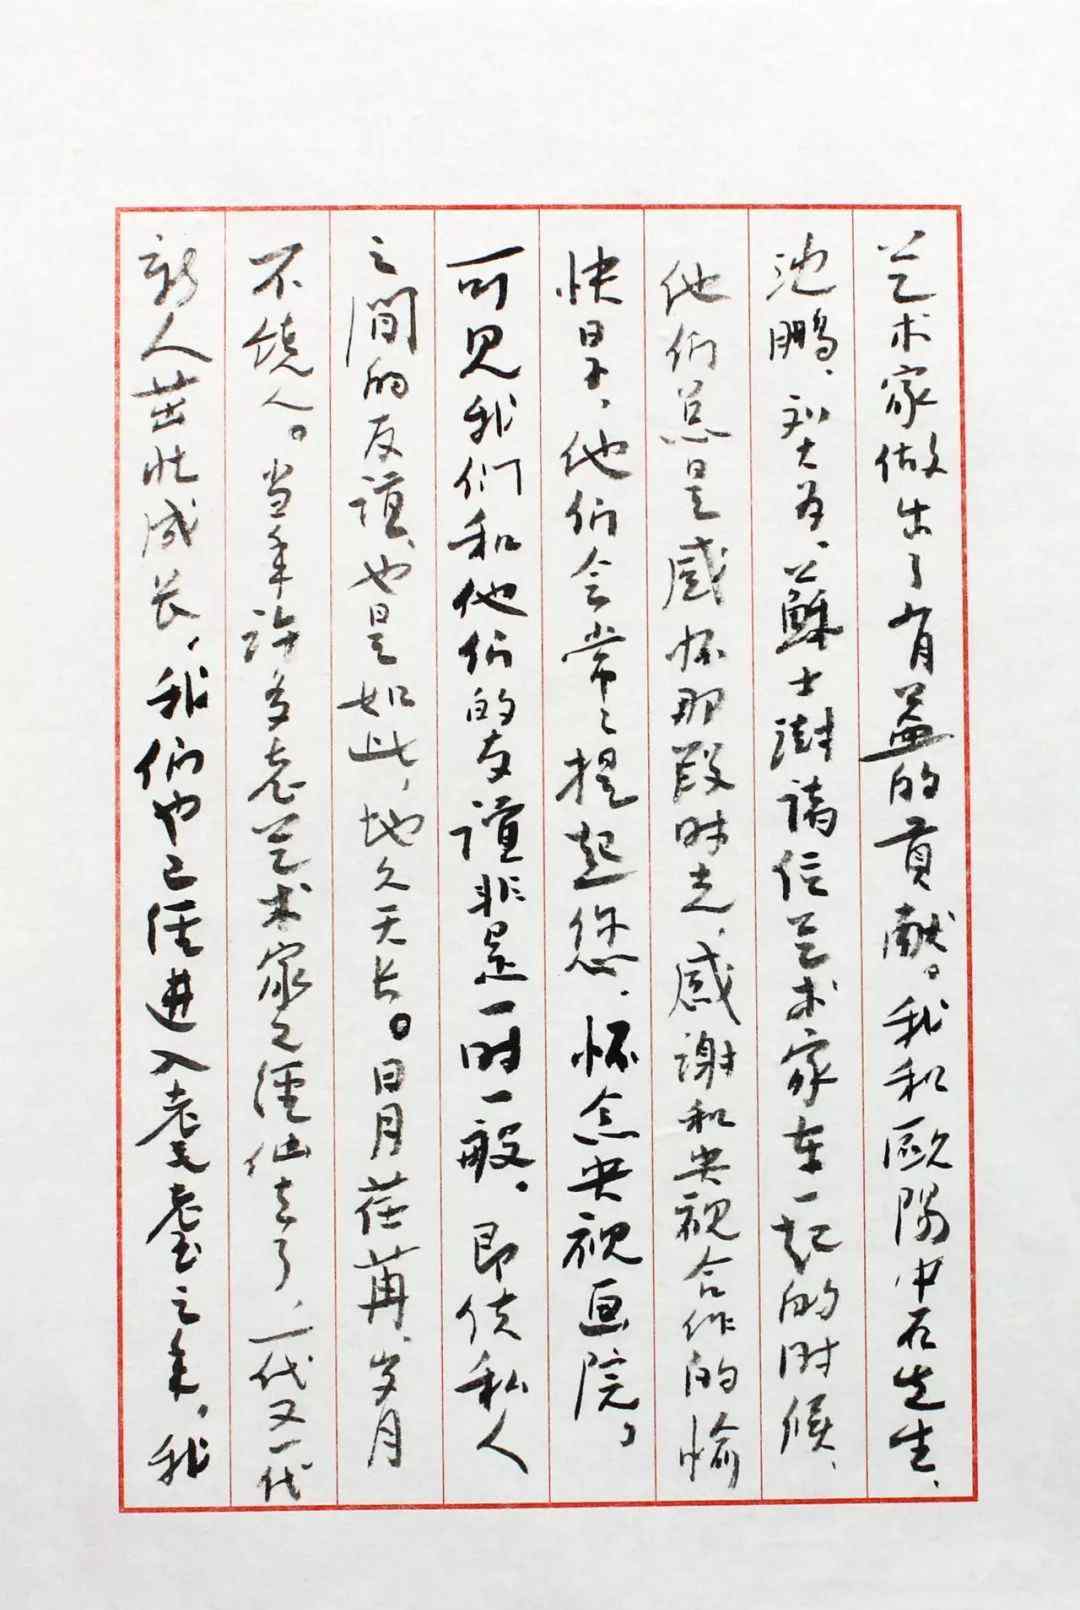 艺术家做出了有益的贡献。我和欧陽中石先生、
池鹏、契为、蘇士澍諸位艺术家在一起的时候、
他们总是感怀那段时光、感谢和央视合作的愉
快日子，他们会常々提起您、怀念央视画院，
可见我们和他们的友谊非是一时一般。即使私人
之間的友谊、也是如此，地久天长。日月荏苒、岁月
不饶人。当年許多老艺术家已經仙去了、一代又一代
新人茁壮成长，我们也已經進入耄耋之年，我